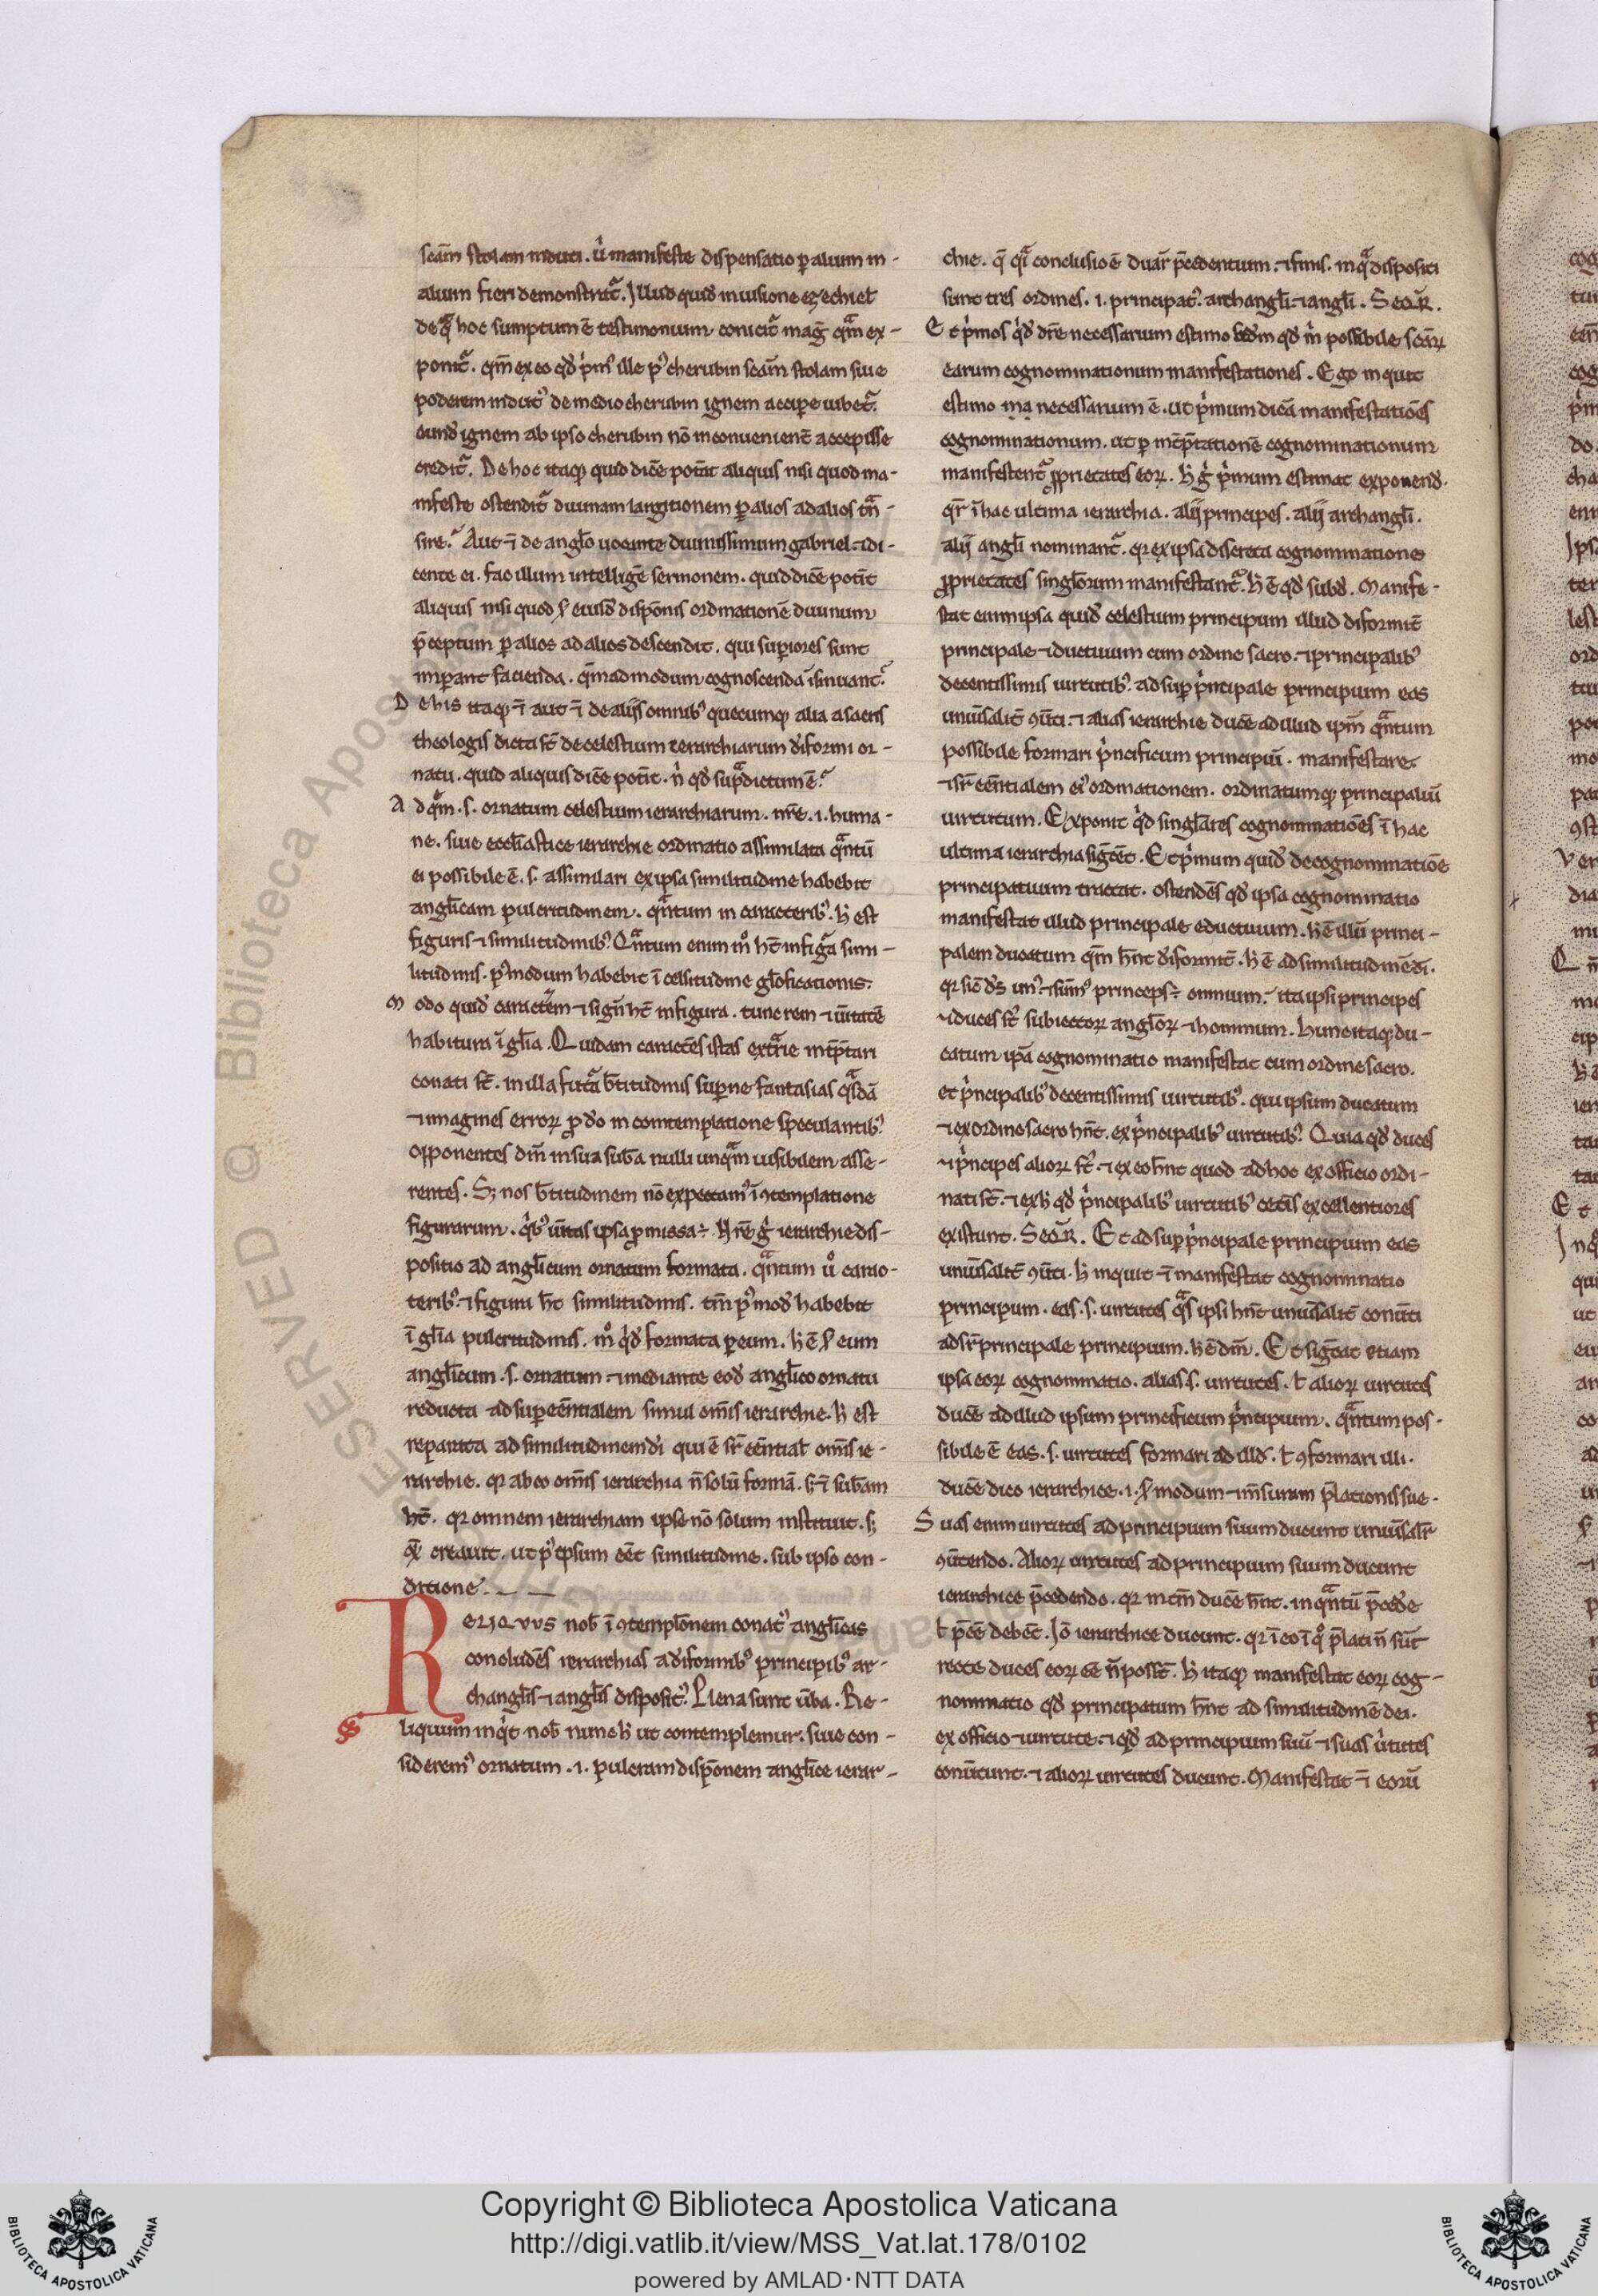 scđam stolam induci. ů manifeste dispensatio ꝑ alium in-
alium fieri demonstrat̃. Illud quid̾ in uisione ezechiel
de qͣ hoc sumptum ē testimonium conicit̃ mag̃ qͣm ex-
ponit̃. qm̄ ex eo qd̾ pͥmꝰ ille pꝰ cherubin scđam stolam siue
poderem induitꝰ de medio cherubin ignem accipe iubet̃.
eund̾ ignem ab ipso cherubin nō inconuenient̃ accepisse
credit̃. De hoc itaqꝫ quid dicē potit aliquis nisi quod ma-
nifeste ostendit̃ diuinam largitionem ꝑ alios ad alios tn̄-
sire. Aut ⁊̄ de anglo uocante diuinissimum gabriel. ⁊ di-
cente ei. fac illum intelligē sermonem. quid dicē potit
aliquis nisi quod ẜ eiusd̾ disp̄onis ordinationē diuinum
p̄ceptum ꝑ alios ad alios descendit. qui suꝑiores sunt
imꝑant facienda. qm̄admodum cognoscenda īsinuant̃.
De his itaqꝫ ⁊̄ aut ⁊̄ de alijs omnibꝰ quecumqꝫ alia a sacris
theologis dicta st̄ de celestium ierarchiarum d̾iformi or-
natu. quid aliquis dicē potit. nͥ qd̾ supͣdictum ē.
Ad qͣm .s. ornatum celestium ierarchiarum. nr̄e .i. huma-
ne. siue ecclīastice ierarchie ordinatio assimilata qͣntū
ei possibile ē. s. assimilari ex ipsa similitudine habebit
angl̄icam pulcritudinem. qͣntum in caracteribꝰ. ꝧ est
figuris ⁊ similitudinibꝰ. Qͣntum enim mͦ ht̄ in figͣa simi-
litudinis. pꝰ modum habebit ī celsitudine gl̄oficationis.
Modo quid̾ caractem ⁊ sign̄ ht̄ in figura. tunc rem ⁊ ūitatē
habitura ī gl̄ia. Quidam caractēs istas extͣrie int̄p̄tari
conati st̄. in illa futͣa b̄titudinis suꝑne fantasias qͣsdā
⁊ imagines erroꝝ ꝓ dō in contemplatione speculantibꝰ.
opponentes dm̄ in sua sub̄a nulli unqͣm uisibilem asse-
rentes. Sꝫ nos b̄titudinem nō expectamꝰ ī ꝯtemplatione
figurarum. qͥbꝰ ūitas ipsa ꝓmissa ÷. ꝧ rē gͥ ierarchie dis-
positio ad angl̄icum ornatum formata. qͣntum uͦ carac-
teribꝰ. ⁊ figura ht̄ similitudinis. tm̄ pꝰ mod̾ habebit
ī gl̄ia pulcritudinis. mͦ qͥd̾ formata ꝑ eum. ꝧ ē ẜ eum
angl̄icum .s. ornatum. ⁊ mediante eod̾ angl̄ico ornatu
reducta ad suꝑeēntialem simul omīs ierarchie. ꝧ est
reparata ad similitudinem d̾i qui ē sr̄ eēntial̄ omīs ie-
rarchie. qꝛ ab eo omīs ierarchia n̄ solū formā. sꝫ ⁊ sub̄am
ht̄. qꝛ omnem ierarchiam ipse nō solum instituit. sꝫ
qͦꝫ creauit. ut pꝰ ipsum eēt similitudine. sub ipso con-
ditione.
RELIQVVS nob̄ ī ꝯtempl̄onem conatꝰ angl̄icas
concludēs ierarchias a d̾iformibꝰ principibꝰ ar-
changl̄is ⁊ angl̄is dispositꝰ. Plena sunt ūba. Re-
liquum inqͥt nob̄ nunc ꝧ ut contemplemur. siue con-
siderem̄ ornatum .i. pulcram disp̄onem angl̄ice ierar-
chie. q̄ qͣi conclusio ē duaꝝ p̄cedentium. ⁊ finis. in qͣ dispositi
sunt tres ordines. i. principatꝰ. archangl̄i ⁊ angl̄i. Seqͥꝛ.
Et pͥmos qͥd̾ dr̄e necessarium estimo sed̾m qd̾ mͥ possibile scāꝝ
earum cognominationum manifestationes. Ego inquit
estimo ma necessarium ē. ut pͥmum dicā manifestatiōes
cognominationum. ut ꝑ int̄p̄tationē cognominationum
manifestent̃ ꝓprietates eoꝝ. ꝧ gͥ pͥmum estimat exponend̾.
qr̄ ī hac ultima ierarchia. alij principes. alij archangl̄i.
alij angl̄i nominant̃. qꝛ ex ipsa discreta cognominatione
ꝓprietates singl̄orum manifestant̃. ꝧ ē qd̾ subd̾. Manife-
stat enim ipsa quid̾ celestium principum illud d̾iformit̄
principale ⁊ ductiuum cum ordine sacro. ⁊ principalibꝰ
decentissimis uirtutibꝰ. ad suꝑ pͥncipale principium eas
uniūsalit̄ ꝯūti. ⁊ alias ierarchie ducē ad illud ipm̄ qͣntum
possibile formari pͥncificum principiū. manifestare
⁊ sr̄ eēntialem eiꝰ ordinationem. ordinatumqꝫ principaliū
uirtutum. Exponit qͥd̾ singl̄ares cognominatiōes ī hac
ultima ierarchia sig̃cēt. Et pͥmum quid̾ de cognominatiōe
principatuum tractat. ostendēs qd̾ ipsa cognominatio
manifestat illud principale eductiuum. ꝧ ē illū princi-
palem ducatum qm̄ hn̄t d̾iformit̄. ꝧ ē ad similitudinē d̾i.
qꝛ sic d̾s unꝰ ⁊ sūmꝰ princeps ÷ omnium. ita ipsi principes
⁊ duces st̄ subiectoꝝ angl̄oꝝ ⁊ hominum. hunc itaqꝫ du-
catum ipā cognominatio manifestat cum ordine sacro.
et pͥncipalibꝰ decentissimis uirtutibꝰ. qui ipsum ducatum
⁊ ex ordine sacro hn̄t. ex pͥncipalibꝰ uirtutibꝰ. Quia qd̾ duces
⁊ pͥncipes alioꝝ st̄. ⁊ ex eo hn̄t quod ad hoc ex officio ordi-
nati st̄. ⁊ ex ꝧ qd̾ pͥncipalibꝰ uirtutibꝰ cetīs excellentiores
existunt. Seqͥꝛ. Et ad suꝑ pͥncipale principium eas
uniūsalit̄ ꝯūti. ꝧ inquit ⁊̄ manifestat cognominatio
principum. eas .s. uirtutes qͣs ipsi hn̄t uniūsalit̄ conūti
ad sr̄ principale principium. ꝧ ē dm̄. Et sig̃cat etiam
ipsa eoꝝ cognominatio. alias .s. uirtutes. ł alioꝝ uirtutes
ducē ad illud ipsum principificum pͥncipium. qͣntum pos-
sibile ē eas .s. uirtutes formari ad illd̾. ł ꝯformari illi.
ducē dico ierarchice .i. ẜ modum ⁊ m̄suram p̄lationis sue.
Suas enim uirtutes ad principium suum ducunt uniūsalr̄
ꝯūtendo. Alioꝝ uirtutes ad principium suum ducunt
ierarchice p̄cedendo. qꝛ in tm̄ ducē hn̄t. in qͣntū p̄ced̾e
ł p̄cē debēt. Iō ierarchice ducunt. qꝛ ī eo ī qͦ p̄lati n̄ sūt
recte duces eoꝝ eē n̄ possūt. ꝧ itaqꝫ manifestat eoꝝ cog-
nominatio qd̾ principatum hn̄t ad similitudinē dei.
ex officio ⁊ uirtute. ⁊ qd̾ ad principium suū ⁊ suas uͥtutes
conūtunt. ⁊ alioꝝ uirtutes ducunt. Manifestat ⁊̄ eorū
Copyright © Biblioteca Apostolica Vaticana
http://digi.vatlib.it/view/MSS_Vat.lat.178/0102
powered by AMLAD·NTT DATA